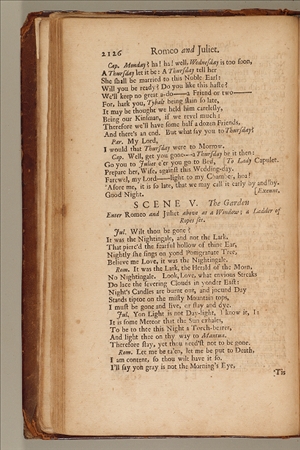 2126 Romeo and Juliet.
Cap. Monday? ha! ha! well, Wednesday is too soon,
A Thursday let it be: A Thursday tell her
She shall be married to this Noble Earl:
Will you be ready? Do you like this haste?
We'll keep no great a-do——a Friend or two——
For, hark you, Tybalt being slain so late,
It may be thought we held him carelesly,
Being our Kinsman, if we revel much:
Therefore we'll have some half a dozen Friends,
And there's an end. But what say you to Thursday?
Par. My Lord,
I would that Thursday were to Morrow.
Cap. Well, get you gone——a Thursday be it then:
Go you to Juliet e'er you go to Bed, [To Lady Capulet.
Prepare her, Wife, against this Wedding-day.
Farewel, my Lord——light to my Chamber, hoa!
'Afore me, it is so late, that we may call it early by and by.
Good Night. [Exeunt.
SCENE V. The Garden
Enter Romeo and Juliet above at a Window; a Ladder of
Ropes set.
Jul. Wilt thou be gone?
It was the Nightingale, and not the Lark,
That pierc'd the fearful hollow of thine Ear,
Nightly she sings on yond Pomgranate Tree,
Believe me Love, it was the Nightingale.
Rom. It was the Lark, the Herald of the Morn,
No Nightingale. Look, Love, what envious Streaks
Do lace the severing Clouds in yonder East:
Night's Candles are burnt out, and jocund Day
Stands tiptoe on the misty Mountain tops,
I must be gone and live, or stay and dye.
Jul. Yon Light is not Day-light, I know it, I:
It is some Meteor that the Sun exhales,
To be to thee this Night a Torch-bearer,
And light thee on thy way to Mantua.
Therefore stay, yet thou need'st not to be gone.
Rom. Let me be ta'en, let me be put to Death,
I am content, so thou wilt have it so.
I'll say yon gray is not the Morning's Eye,
'Tis